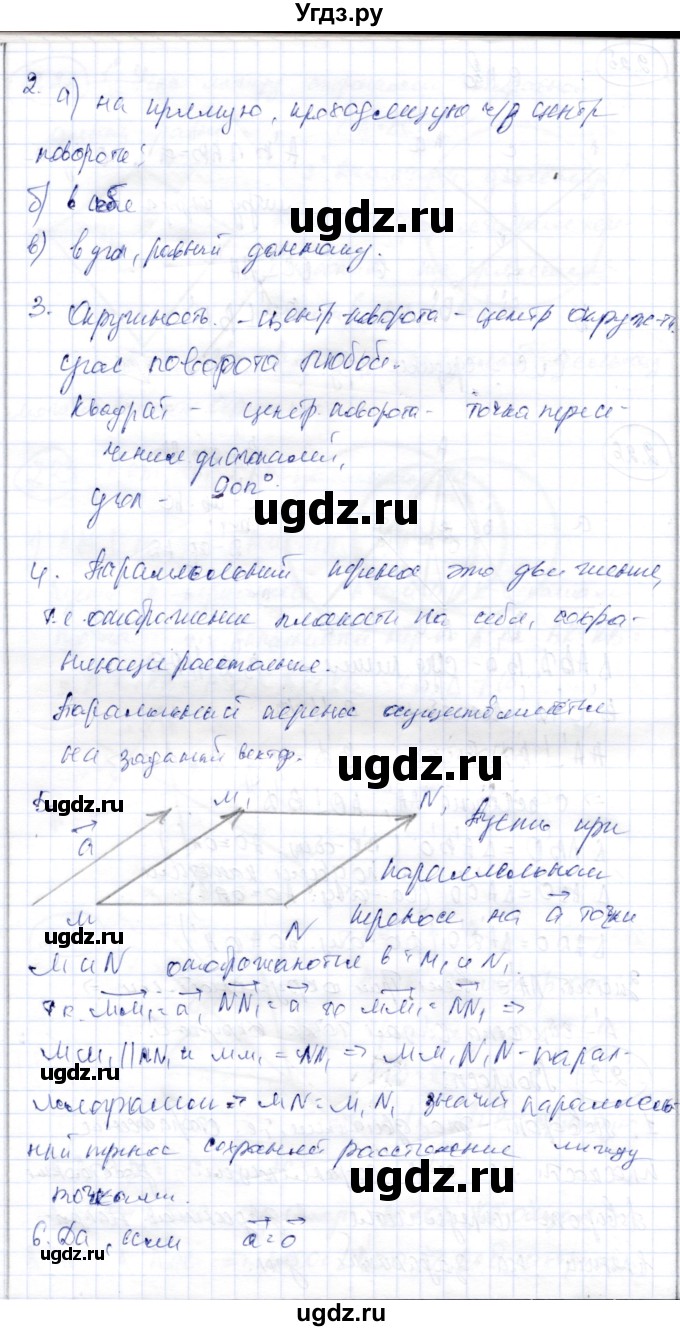 Угдз.ру
2. а) на прямую, проходящую ч/з центр
поворота;
б) в себя
ugdz.ru
в) в угол, равный данному.
3. Окружность - центр поворота - центр окруж-ти.
угол поворота любой.
Квадрат - центр поворота - точка пересе-
чения диагоналей,
угол - 90n°.
ugdz.ru
4. Параллельный перенос это движение,
т.е отображение плоскости на себя, сохра-
няющие расстояние.
Параллельный перенос осуществляется
на заданный вектор.
ugdz.ru
5. M₁ N₁ Пусть при
a⃗ параллельном
M N переносе на a⃗ точки
ugdz.ru
M и N отображаются в т M₁ и N₁.
ugdz.ru
т к. MM₁ = a⃗, NN₁ = a⃗ то MM₁ = NN₁ ⇒
MM₁ || NN₁ и MM₁ = NN₁ ⇒ MM₁N₁N - парал-
ugdz.ru
лелограмм ⇒ MN = M₁N₁ значит параллель-
ный перенос сохраняет расстояние между
точками.
ugdz.ru
6. Да, если a⃗ = 0⃗
ugdz.ru
ugdz.ru